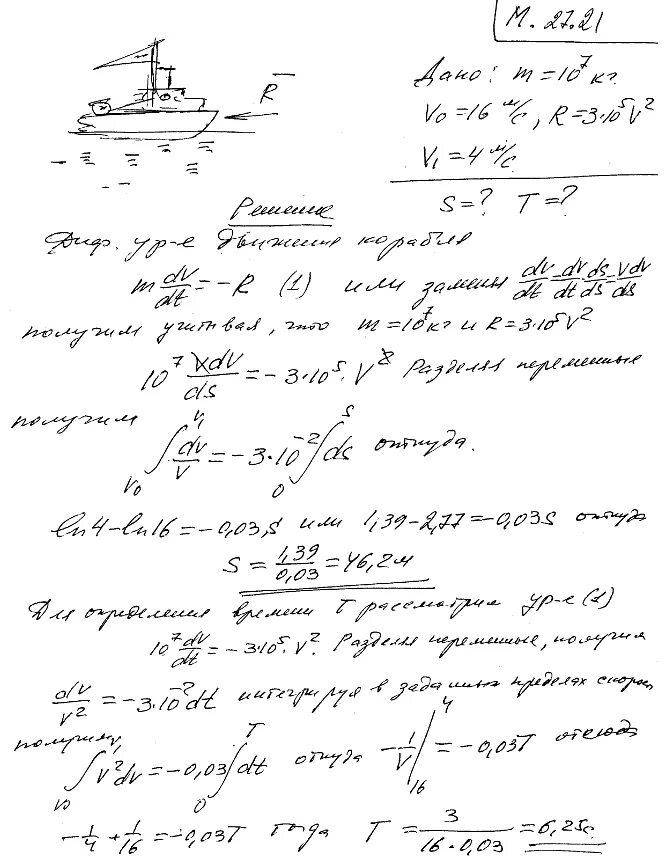 М. 27.21
R
Дано: m = 10⁷ кг
V₀ = 16 м/с, R = 3·10⁵V²
V₁ = 4 м/с
S = ? T = ?
Решение
Диф. ур-е движения корабля
m dv/dt = -R (1) или замены dv/dt = dv/dt · ds/ds = Vdv/ds
получим учитывая, что m = 10⁷ кг и R = 3·10⁵V²
10⁷ Vdv/ds = -3·10⁵·V² Разделяя переменные
получим
∫_{V₀}^{V₁} dv/V = -3·10⁻² ∫_{0}^{S} ds откуда.
ln4 - ln16 = -0,03S или 1,39 - 2,77 = -0,03S откуда
S = 1,39/0,03 = 46,2 м
Для определения времени T рассмотрим ур-е (1)
10⁷ dv/dt = -3·10⁵·V². Разделяя переменные, получим
dv/V² = -3·10⁻² dt интегрируя в заданных пределах скорос
получим
∫_{V₀}^{V₁} V²dv = -0,03 ∫_{0}^{T} dt откуда -1/V |_{16}^{4} = -0,03T отсюда
-1/4 + 1/16 = -0,03T тогда T = 3/(16·0,03) = 6,25с.